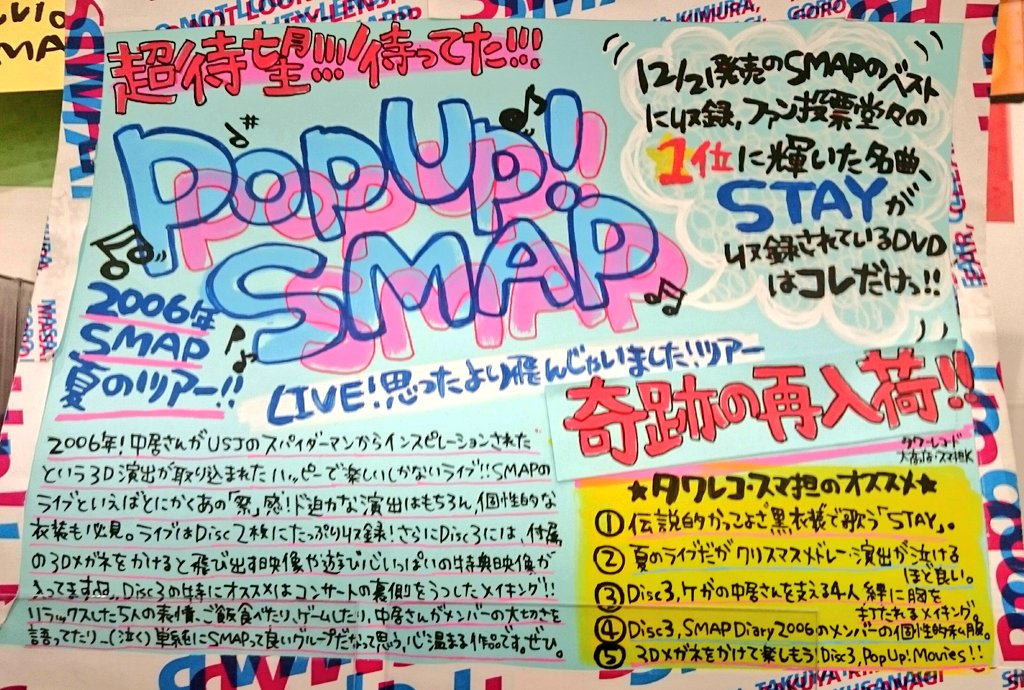 超待望!!!待ってた!!!
POP UP!
SMAP
2006年
SMAP
夏のツアー!!
LIVE!思ったより飛んじゃいました!ツアー
12/21発売のSMAPのベスト
に収録,ファン投票堂々の
1位に輝いた名曲、
STAYが
収録されているDVD
はコレだけっ!!
奇跡の再入荷!!
タワーレコード
2006年!中居さんがUSJのスパイダーマンからインスピレーションされた
という3D演出が取り込まれたハッピーで楽しいしかないライブ!!SMAPの
ライブといえばとにかくあの「祭」感!ド迫力な演出はもちろん,個性的な
衣装も必見。ライブはDisc2枚にたっぷり収録!さらにDisc3には,付属
の3Dメガネをかけると飛び出す映像や遊び心いっぱいの特典映像が
入ってます。Disc3の特にオススメはコンサートの裏側をうつしたメイキング!!
リラックスした5人の表情、ご飯食べたり,ゲームしたり,中居さんがメンバーの大切さを
語ってたり…(泣く)単純にSMAPって良いグループだなって思う,心温まる作品です。ぜひ。
★タワレコ・スマ担のオススメ★
①伝説的かっこよさ黒衣装で歌う「STAY」。
②夏のライブだがクリスマスメドレー演出が泣ける
ほど良い。
③Disc3,ケガの中居さんを支える4人 絆に胸を
打たれるメイキング。
④Disc3,SMAP Diary2006のメンバーの個性的私服。
⑤3Dメガネをかけて楽しもう!Disc3,PopUp!Movies!!